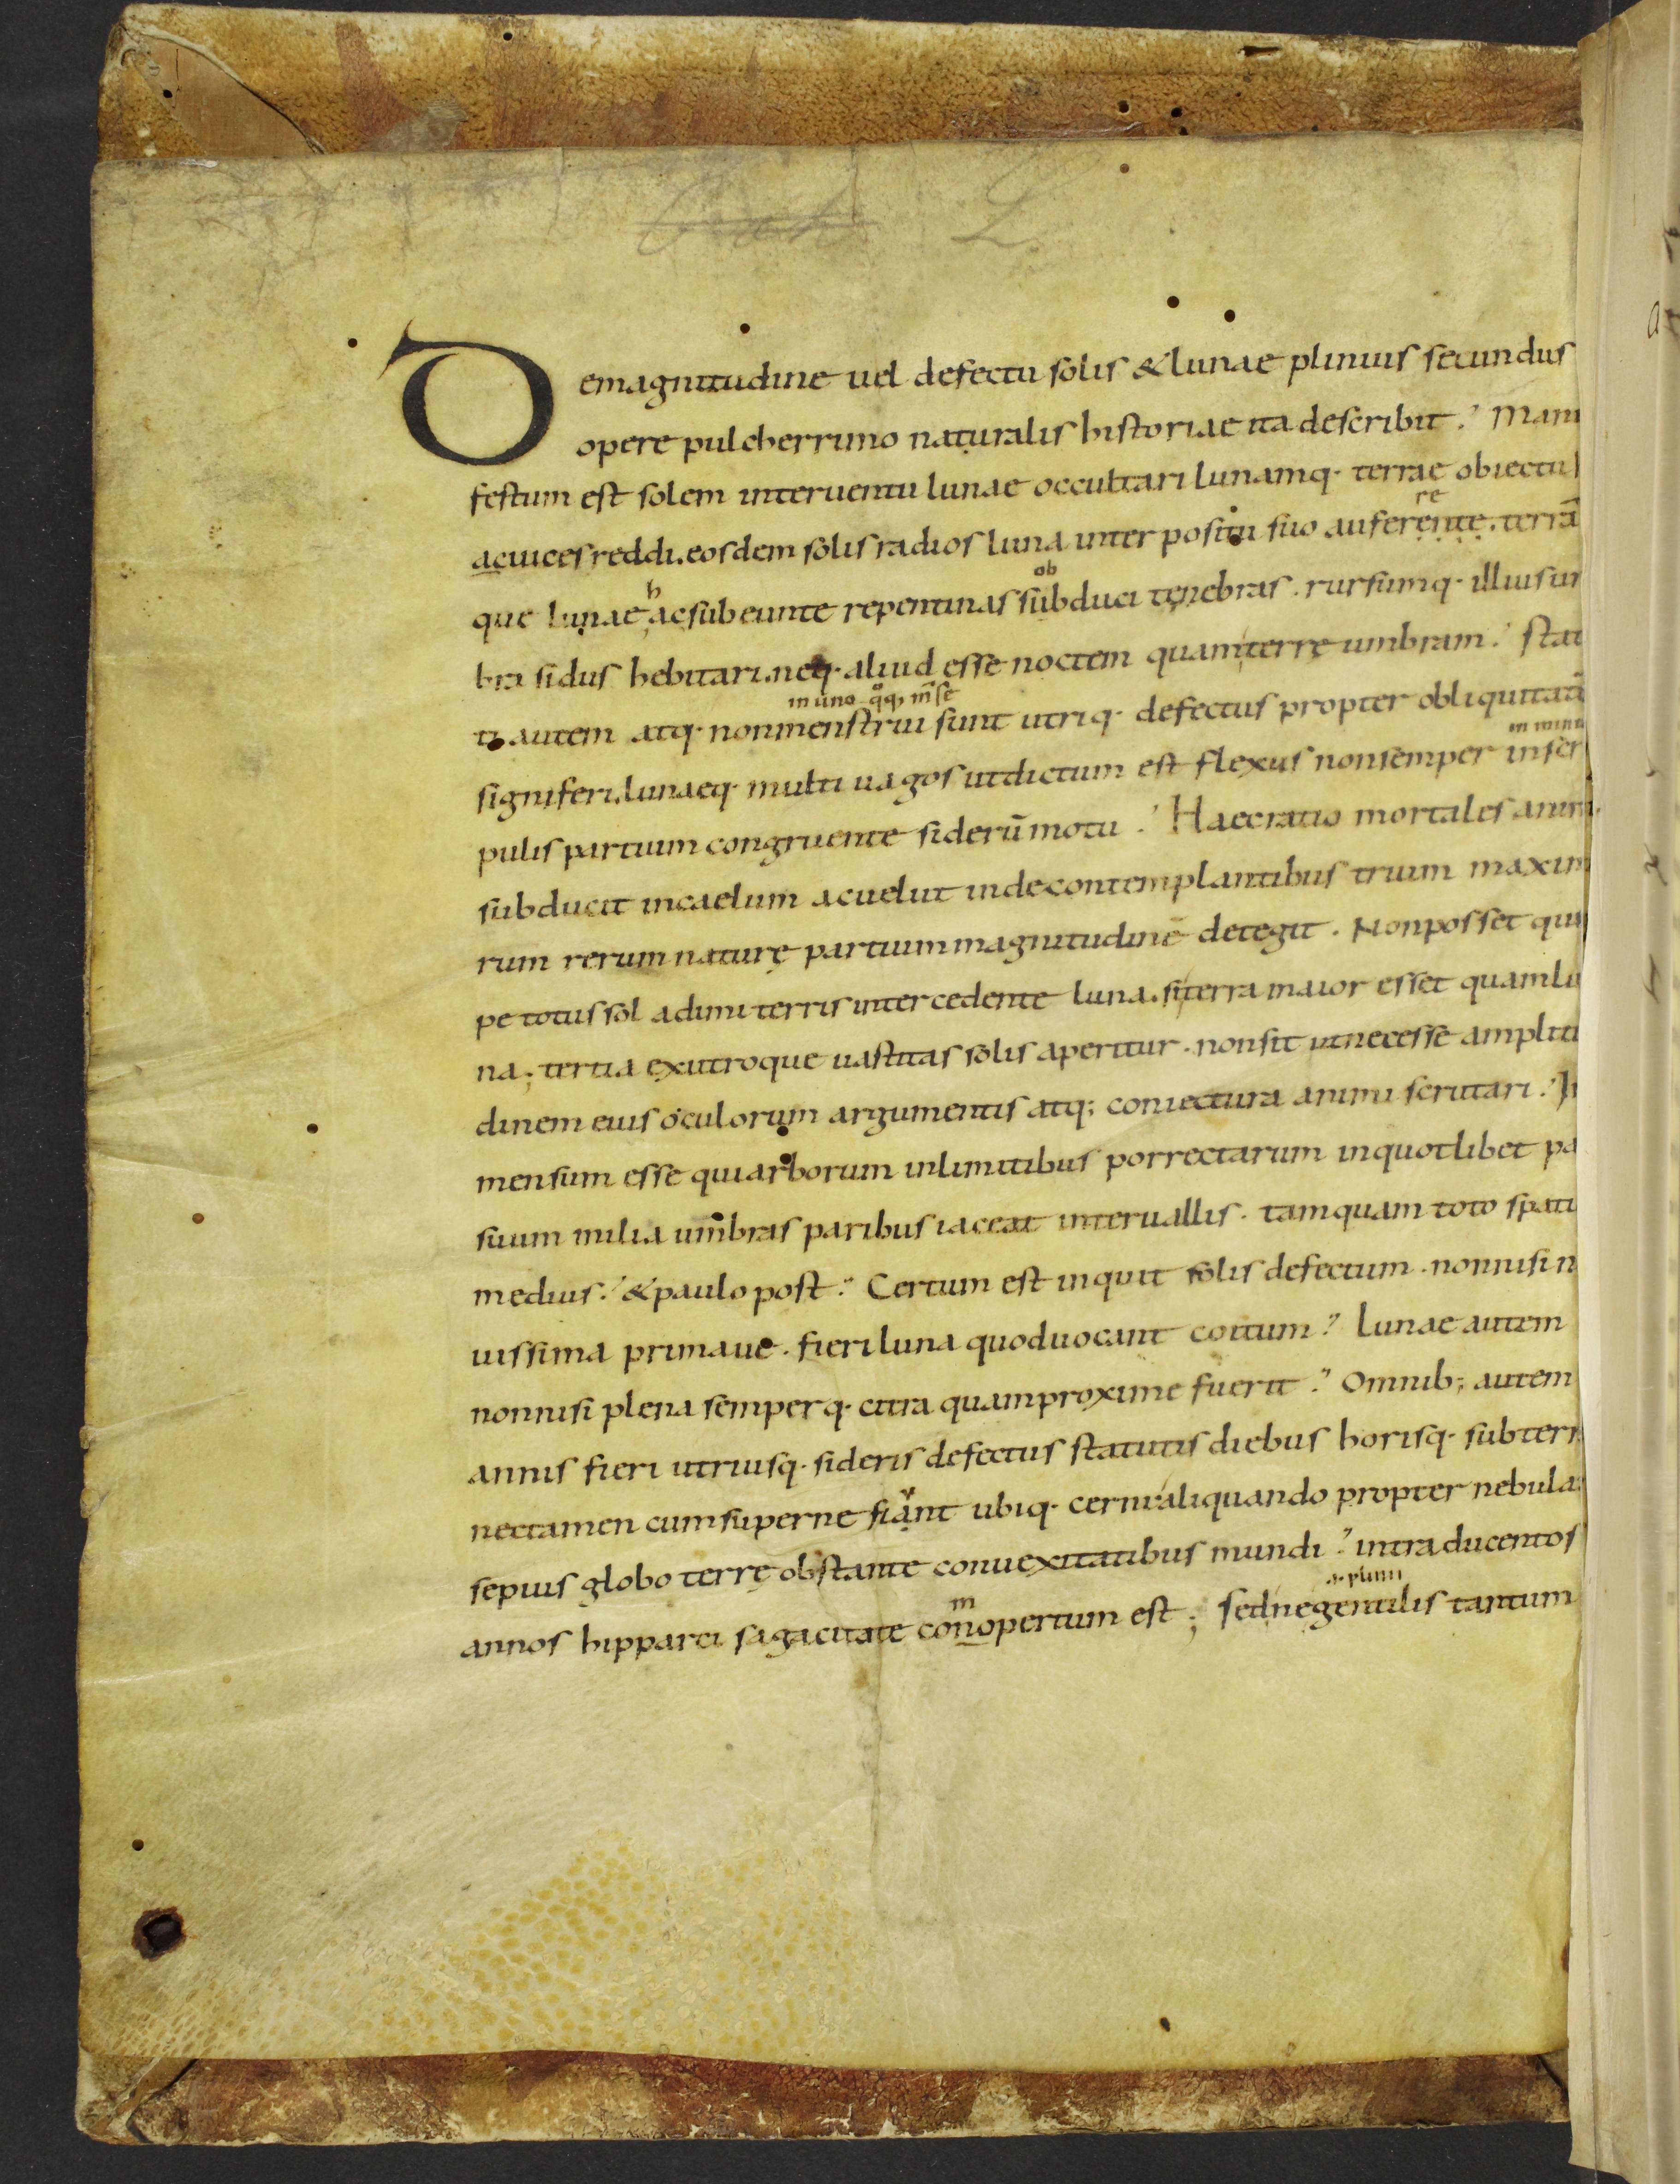 Demagnitudine uel defectu solis & lunae plinius secundus
opere pulcherrimo naturalis historiae ita describit. Mani
festum est solem interuentu lunae occultari lunamq· terrae obiectu
re
ac uices reddi. eosdem solis radios luna inter positu suo auferente. terrā
h ob
que lunae ac subeunte repentinas subduci tenebras. rursumq· illius um
bra sidus hebitari. neq· aliud esse noctem quam terrę umbram. Stat
in uno qq, m̄se
ti autem atq· non menstrui sunt utriq· defectus propter obliquitatē
in minu
signiferi. lunaeq· multi uagos ut dictum est flexus non semper in scri
pulis partium congruente siderū motu. Haec ratio mortales animi
subducit in caelum ac uelut inde contemplantibus trium maxim
rum rerum naturę partium magnitudinē detegit. Non posset qui
pe totus sol adimi terris intercedente luna. si terra maior esset quam lu
na; tertia ex utroque uastitas solis aperitur. non sit ut necesse amplitu
dinem eius oculorum argumentis atq; coniectura animi scrutari. In
mensum esse quia arborum in limitibus porrectarum in quotlibet pa
suum milia umbras paribus iaceat interuallis. tamquam toto spati
medius. & paulo post. Certum est inquit solis defectum. non nisi n
uissima primaue. fieri luna quod uocant coitum. Lunae autem
non nisi plena semperq· citra quam proxime fuerit. Omnib; autem
annis fieri utriusq· sideris defectus statutis diebus horisq· sub terr
nec tamen cum superne fiant ubiq· cerni aliquando propter nebulas
sepius globo terrę obstante conuexitatibus mundi. intra ducentos
m
annos hipparci sagacitate conopertum est; sed ne gentilis tantum